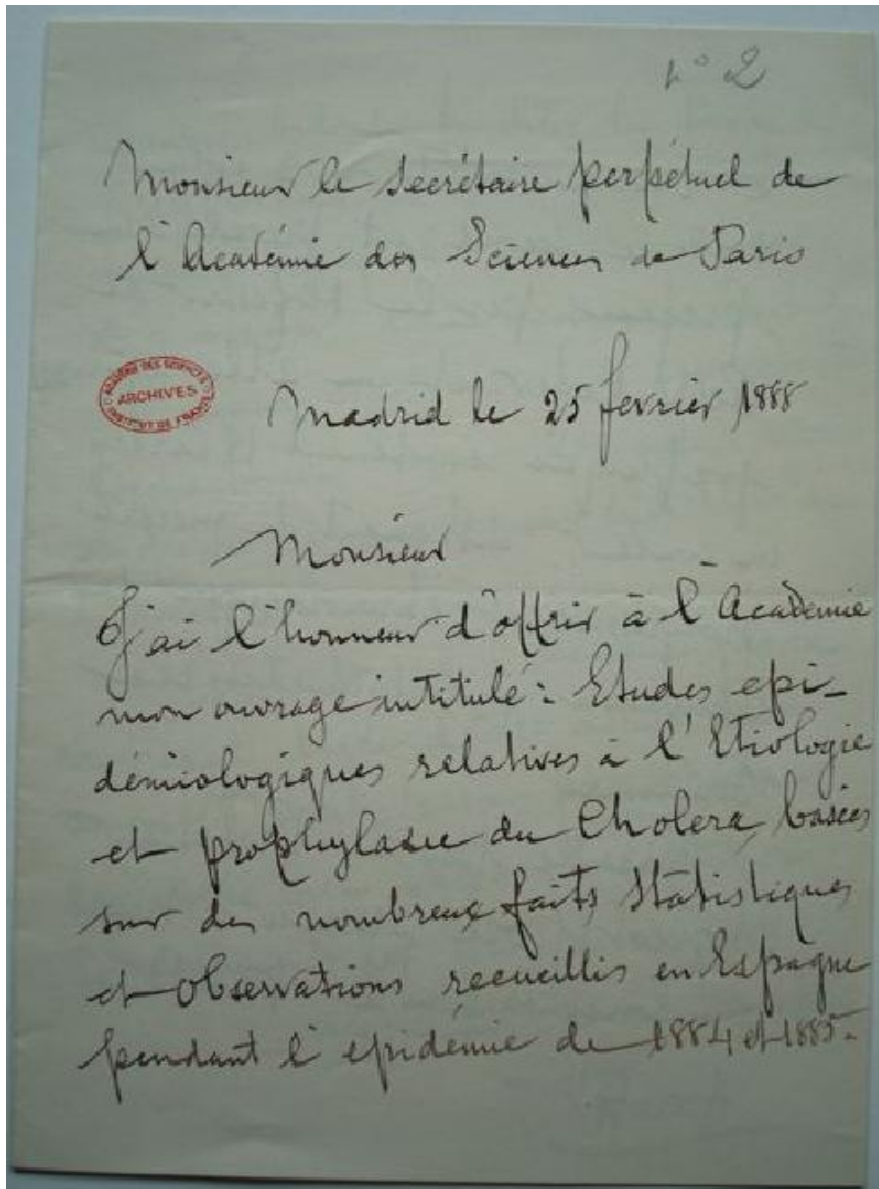 n° 2
Monsieur le Secrétaire perpétuel de
l'Académie des Sciences de Paris
ACADÉMIE DES SCIENCES
ARCHIVES
INSTITUT DE FRANCE
Madrid le 25 fevrier 1888
Monsieur
J'ai l'honneur d'offrir à l'Academie
mon ouvrage intitulé: Etudes epi-
démiologiques relatives à l'Etiologie
et prophylaxie du Cholera, basées
sur des nombreux faits statistiques
et observations recueillis en Espagne
pendant l'epidémie de 1884 et 1885.